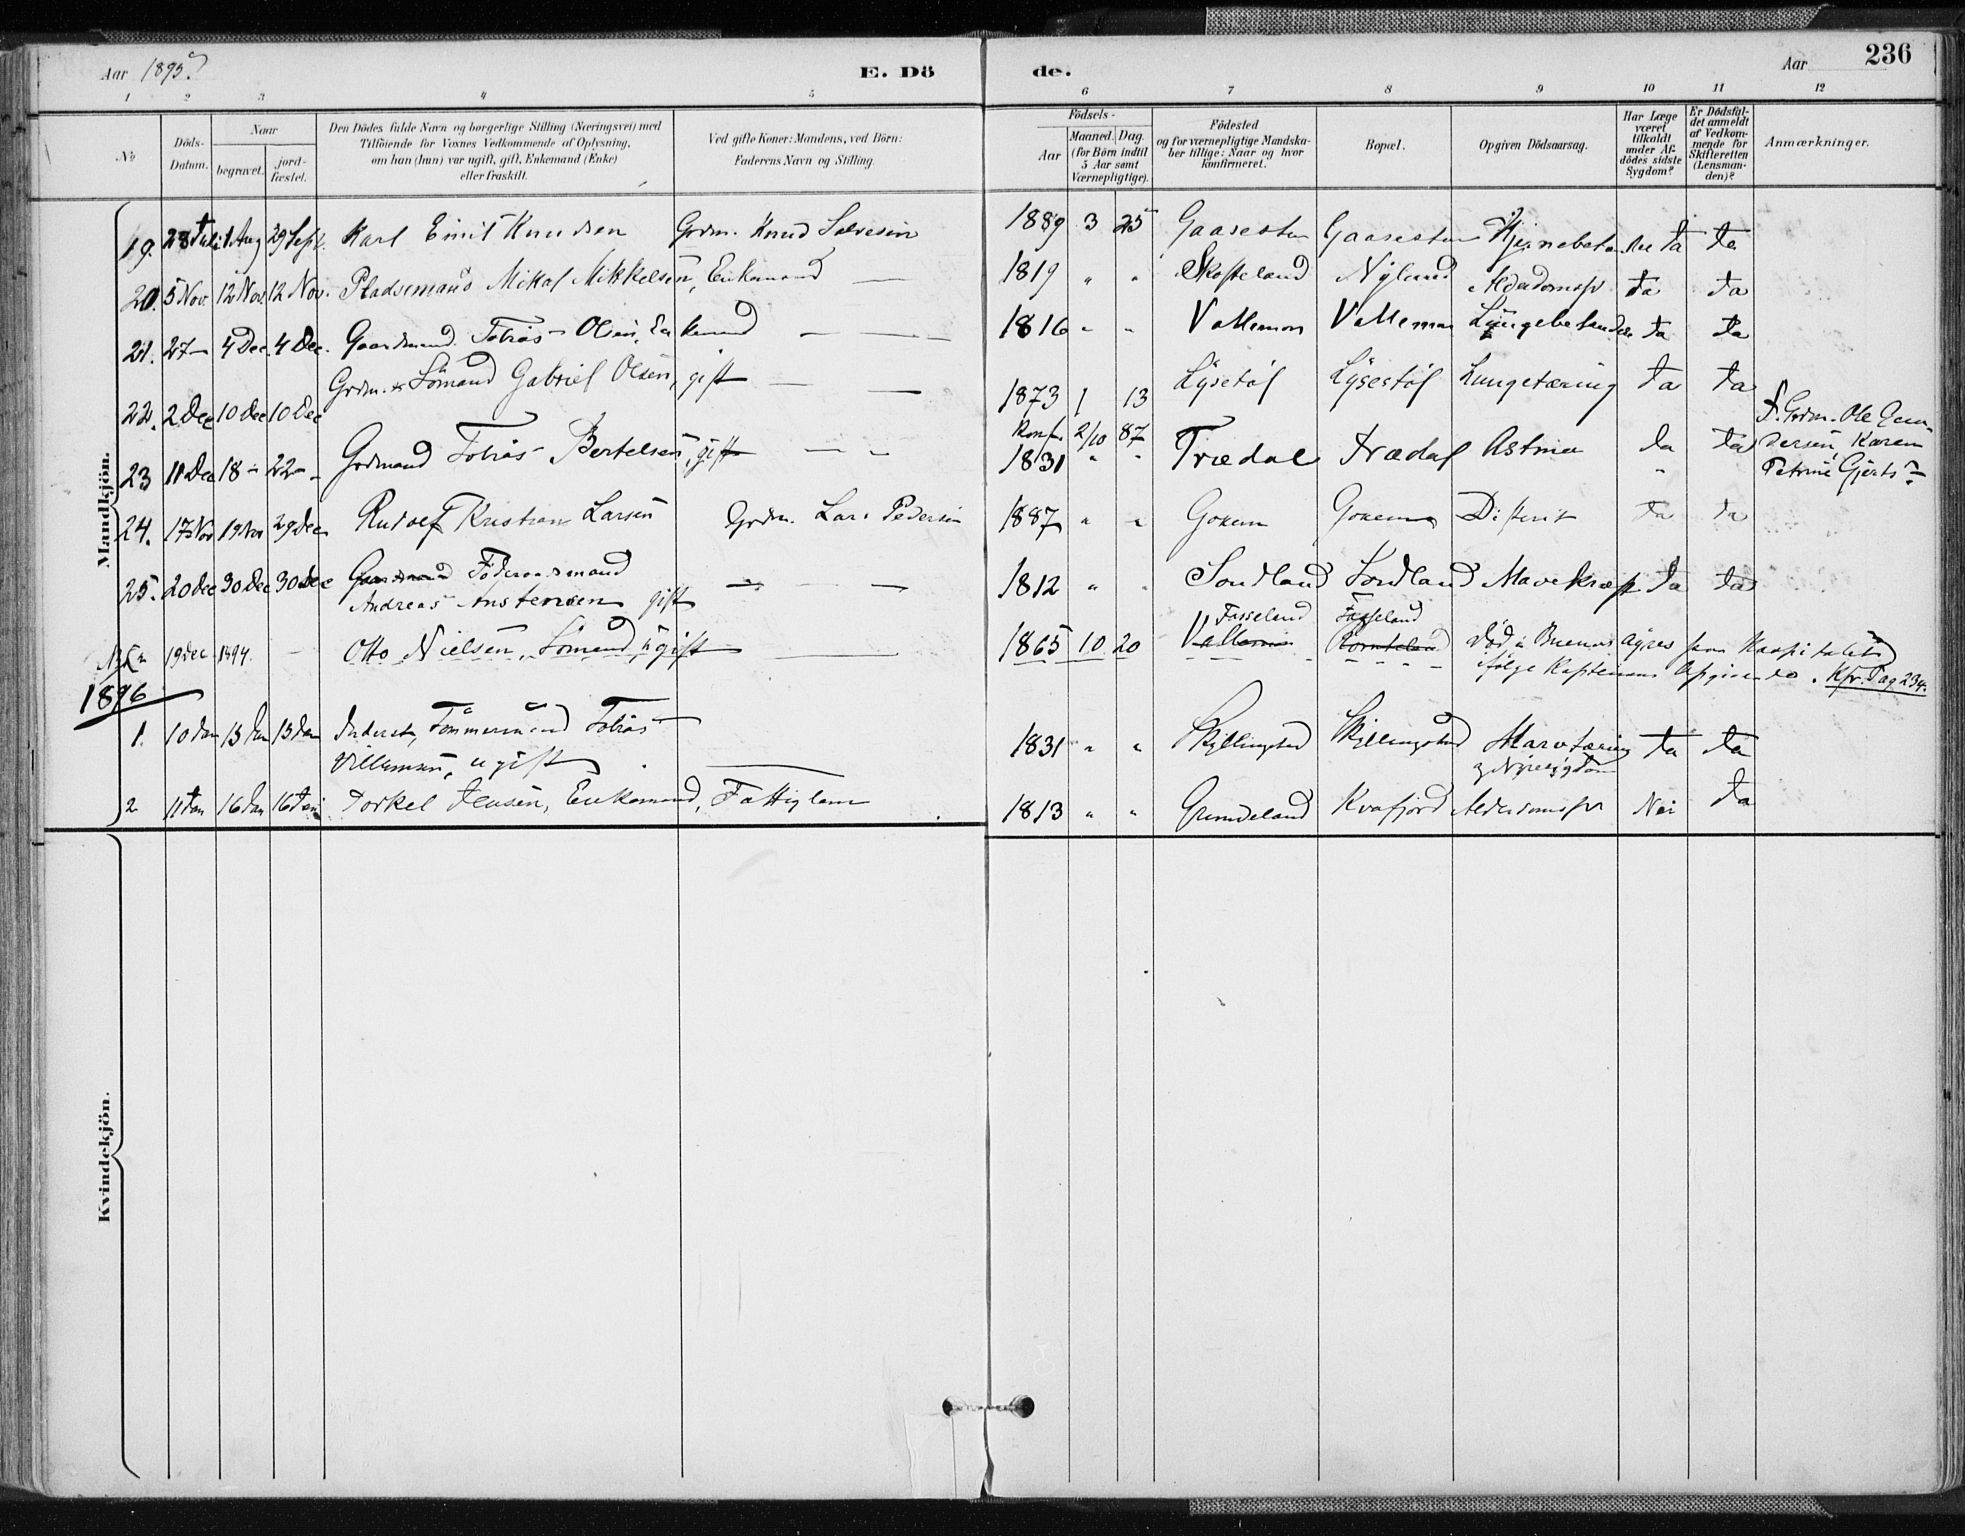 Aar 1895.
E. Dö
de.
Aar
236
1 2 3 4 5 6 7 8 9 10 11 12
No
Döds-
Datum.
Naar
begravet.
jord-
fæstet.
Den Dödes fulde Navn og borgerlige Stilling (Næringsvei) med
Tilföiende for Voxnes Vedkommende af Oplysning,
om han (hun) var ugift, gift, Enkemand (Enke)
eller fraskilt.
Ved gifte Koner: Mandens, ved Börn:
Faderens Navn og Stilling.
Födsels-
Aar
Maaned. Dag.
(for Börn indtil
5 Aar samt
Værnepligtige).
Födested
og for værnepligtige Mandska-
ber tillige: Naar og hvor
konfirmeret.
Bopæl.
Opgiven Dödsaarsag.
Har Læge
været
tilkaldt
under Af-
dödes sidste
Sygdom?
Er Dödsfal-
det anmeldt
af Vedkom-
mende for
Skifteretten
(Lensman-
den)?
Anmærkninger.
Mandkjön.
19. 28 Juli 1 Aug 29 Sept. Karl Emil Knudsen Grdm. Knud Salvesen 1889 3 25 Gaaseston Gaaseston Hjernebetændelse Ja Ja
20. 5 Nov. 12 Nov. 12 Nov. Pladsemand Mikal Mikkelsen, Enkemand — 1819 " " Skofteland Nyland Alderdomssv Ja Ja
21. 27 — 4 Dec. 4 Dec. Gaardmand Tobias Olsen, Enkemand — — 1816 " " Vallemon Vallemon Lungebetændelse Ja Ja
22. 2 Dec 10 Dec 10 Dec Grdm. & Sömand Gabriel Olsen, gift — — 1873 1 13 Lysestöl Lysestöl Lungetæring Ja Ja
Konf. 2/10 87
F. Grdm. Ole Gun-
dersen, Karen
Petrine Gjerts
23 11 Dec 18 — 22 — Grdmand Tobias Bertelsen, gift — — 1831 " " Trædal Trædal Astma Ja Ja
24. 17 Nov 19 Nov 29 Dec Rudolf Kristian Larsen Grdm. Lars Pedersen 1887 " " Difterit Ja Ja
25. 20 Dec 30 Dec 30 Dec Gaardmand Föderaadsmand
Andreas Anstensen gift — — 1812 " " Sordland Sordland Mavekræft Ja Ja
19 Dec 1894. — Otto Nielsen, Sömand, ugift — 1865 10 20 Fasseland Fasseland
Vallemon
Död i Buenos Ayres paa Hospitalet
fölge Kapteinens Opgivende. Kfr. Pag 234.
1896
1. 10 Jan 13 Jan 13 Jan Inderst, Tömmermand Tobias
Villumsen, ugift — 1831 " " Skjellingstad Skjellingstad Marvtæring Ja Ja
og Nyresygdom
2 11 Jan 16 Jan 16 Jan Torkel Jensen, Enkemand, Fattiglem 1813 " " Gundeland Kvafjord Alderdomssv Nei Ja
Kvindekjön.